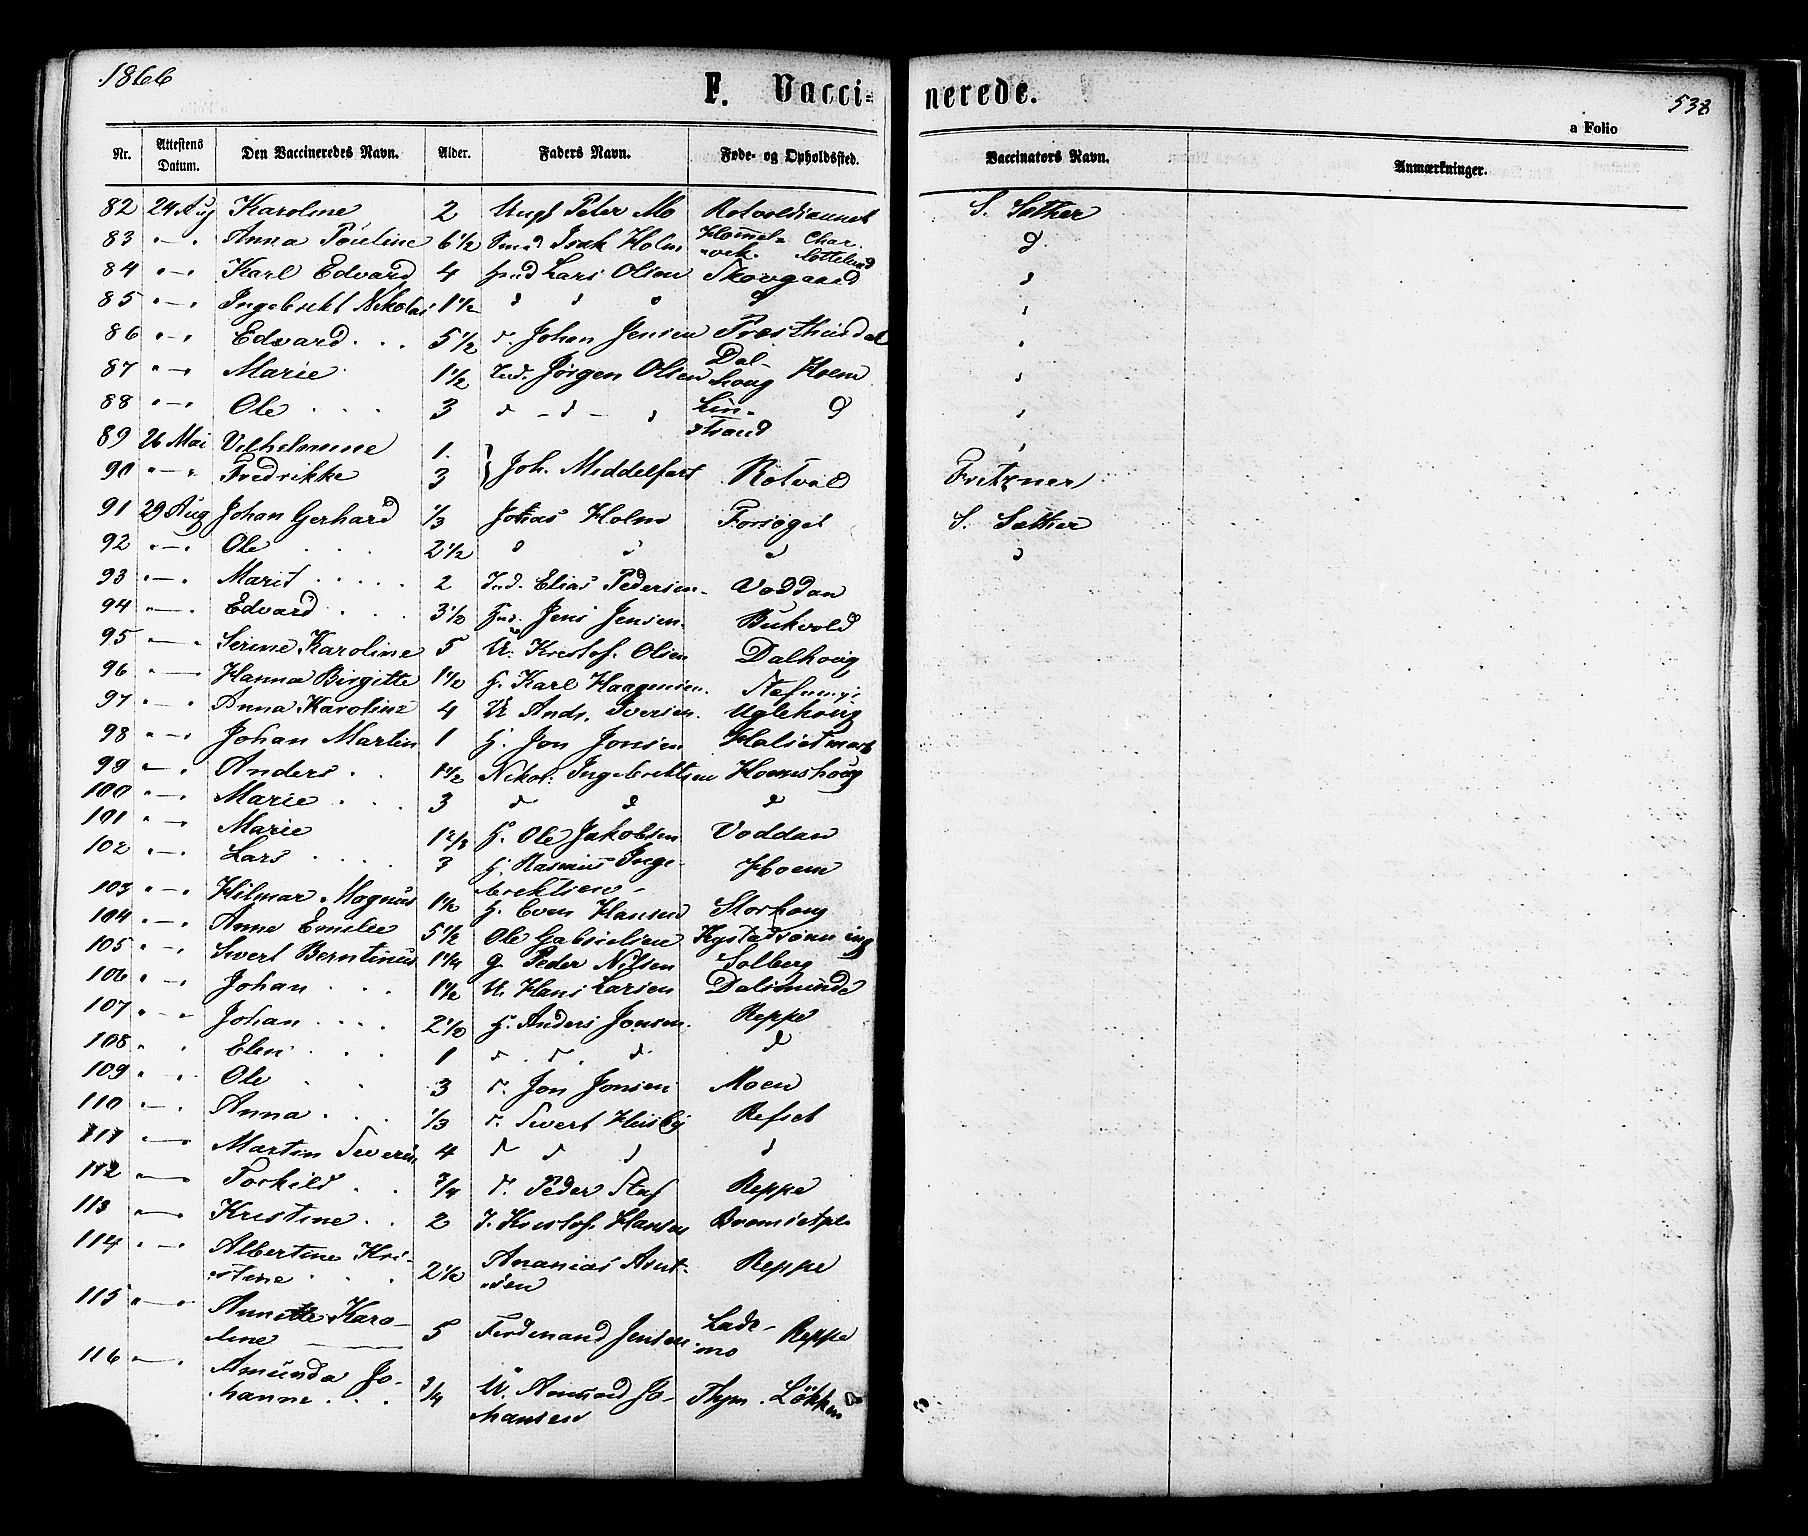 1866
F. Vacci= nerede.
538
a Folio
Nr. Attestens Datum. Den Vaccineredes Navn. Alder. Faders Navn. Føde- og Opholdssted. Vaccinators Navn. Anmærkninger.
82 24 Aug Karoline 2 Ungk Peter Mo Rotvoldsaunet S. Sæther
83 " — " Anna Pouline 6 1/2 Smed Isak Holm Hommel= Char. d
vek. lottelund
84 " — " Karl Edvard 4 Lars Olsen Skovgaard d
85 " — " Ingebrikt Nikolai 1 1/2 d d d d
86 " — " Edvard 5 1/2 Johan Jensen
87 " — " Marie 1 1/2 Ind. Jørgen Olsen Dal- houg Hoem
88 " — " Ole 3 d - d - d Lin- strand d
89 26 Mai Vilhelmine 1
90 " — " Fredrikke 3 } Joh. Middelfart Rotvold Fritzner
91 29 Aug Johan Gerhard 1/3 Holm Forsøget S. Sæther
92 " — " Ole 2 1/2 d d d d
93 " — " Marit 2 Ind. Elias Pedersen Voddan
94 " — " Edvard 3 1/2 Ind. Jens Jensen Bukvold
95 " — " Serine Karoline 5 U. Kristof. Olsen Dalhoug
96 " — " Hanna Birgitte 1 1/2 H. Karl Haagensen
97 " — " Anna Karoline 4 U Andr. Iversen Uglehoug
98 " — " Johan Martin 1 H. Jon Jonsen
99 " — " Anders 1 1/2 Nikol. Ingebriktsen Hoemshoug
100 " — " Marie 3 d d d
101 " — " Marie 1 2/3 H. Ole Jakobsen Voddan
102 " — " Lars 3 H. Rasmus Inge- Hoem
briktsen
103 " — " Hilmar Magnus 1 1/2 H. Even Hansen Storhaug
104 " — " Anne Emilie 5 1/2 Ole Gabrielsen
105 " — " Sivert Berntinus 1 1/4 G. Peder Nilsen Solberg
106 " — " Johan 1 1/2 U. Hans Larsen Dalsminde
107 " — " Johan 2 1/2 H. Anders Jonsen Reppe
108 " " Elen 1 d d d d
109 " — " Ole 3 Jon Jonsen Moen
110 " — " Anna 1/3 Sivert Husby Refset
111 " — " Martin Severin 4 d d d d
112 " — " Torkild 3/4 Peder Staf Reppe
113 " — " Kristine 2 Kristof. Hansen
114 " — " Albertine Kri- 2 1/2 Ananias Arnt- Reppe
stine sen
115 " — " Annette Karo- 5 Ferdinand Jensen Lade- mo Reppe
line
116 " — " Amunda Jo- 3/4 U. Amund Jo- Thym. Løkken
hanne hansen